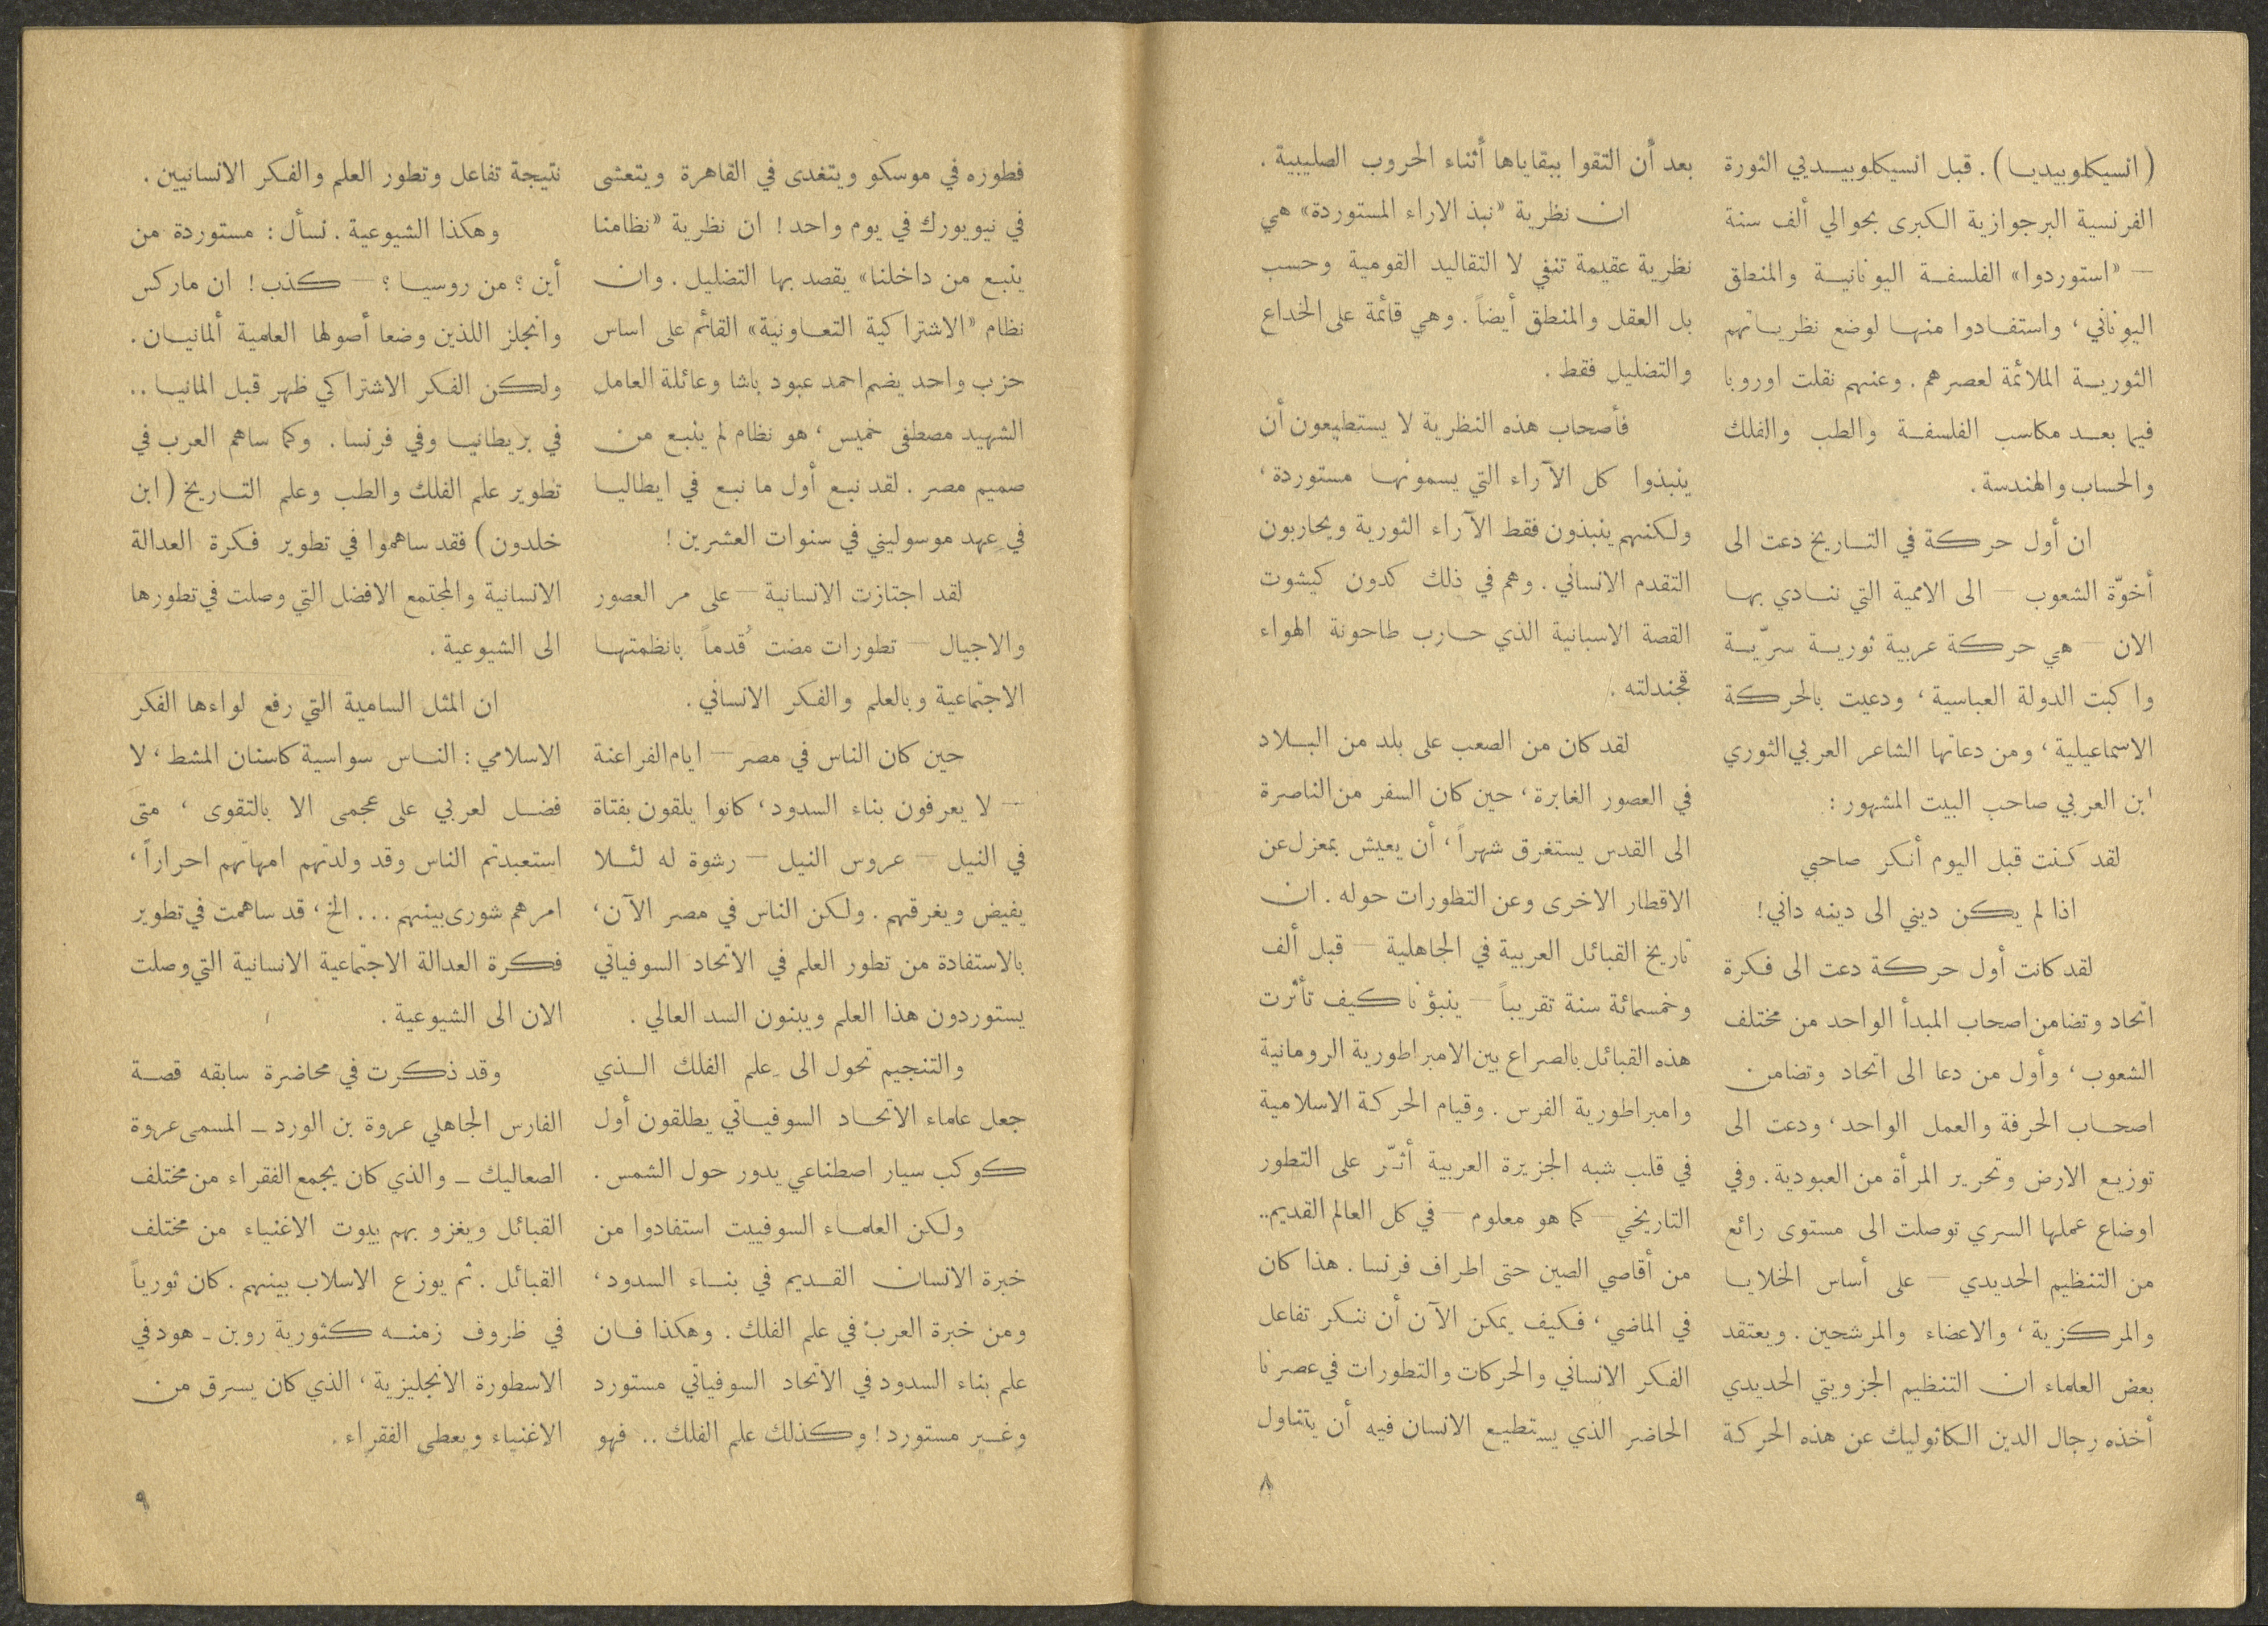 (انسيكلوبيديا). قبل انسيكلوبيديي الثورة
الفرنسية البرجوازية الكبرى بحوالي ألف سنة
— «استوردوا» الفلسفة اليونانية والمنطق
اليوناني، واستفادوا منها لوضع نظرياتهم
الثورية الملائمة لعصرهم. وعنهم نقلت اوروبا
فيما بعد مكاسب الفلسفة والطب والفلك
والحساب والهندسة.
ان أول حركة في التاريخ دعت الى
أخوّة الشعوب — الى الاممية التي ننادي بها
الان — هي حركة عربية ثورية سرّية
واكبت الدولة العباسية، ودعيت بالحركة
الاسماعيلية، ومن دعاتها الشاعر العربي الثوري
ابن العربي صاحب البيت المشهور:
لقد كنت قبل اليوم أنكر صاحبي
اذا لم يكن ديني الى دينه داني!
لقد كانت أول حركة دعت الى فكرة
اتحاد وتضامن اصحاب المبدأ الواحد من مختلف
الشعوب، وأول من دعا الى اتحاد وتضامن
اصحاب الحرفة والعمل الواحد، ودعت الى
توزيع الارض وتحرير المرأة من العبودية. وفي
اوضاع عملها السري توصلت الى مستوى رائع
من التنظيم الحديدي — على أساس الخلايا
والمركزية، والاعضاء والمرشحين. ويعتقد
بعض العلماء ان التنظيم الجزويتي الحديدي
أخذه رجال الدين الكاثوليك عن هذه الحركة
بعد أن التقوا ببقاياها أثناء الحروب الصليبية.
ان نظرية «نبذ الاراء المستوردة» هي
نظرية عقيمة تنفي لا التقاليد القومية وحسب
بل العقل والمنطق أيضاً. وهي قائمة على الخداع
والتضليل فقط.
فأصحاب هذه النظرية لا يستطيعون أن
ينبذوا كل الآراء التي يسمونها مستوردة،
ولكنهم ينبذون فقط الآراء الثورية ويحاربون
التقدم الانساني. وهم في ذلك كدون كيشوت
القصة الاسبانية الذي حارب طاحونة الهواء
فجندلته.
لقد كان من الصعب على بلد من البلاد
في العصور الغابرة، حين كان السفر من الناصرة
الى القدس يستغرق شهراً، أن يعيش بمعزل عن
الاقطار الاخرى وعن التطورات حوله. ان
تاريخ القبائل العربية في الجاهلية — قبل ألف
وخمسمائة سنة تقريباً — ينبؤنا كيف تأثرت
هذه القبائل بالصراع بين الامبراطورية الرومانية
وامبراطورية الفرس. وقيام الحركة الاسلامية
في قلب شبه الجزيرة العربية أثّر على التطور
التاريخي — كما هو معلوم — في كل العالم القديم..
من أقاصي الصين حتى اطراف فرنسا. هذا كان
في الماضي، فكيف يمكن الآن أن ننكر تفاعل
الفكر الانساني والحركات والتطورات في عصرنا
الحاضر الذي يستطيع الانسان فيه أن يتناول
٨
فطوره في موسكو ويتغدى في القاهرة ويتعشى
في نيويورك في يوم واحد! ان نظرية «نظامنا
ينبع من داخلنا» يقصد بها التضليل. وان
نظام «الاشتراكية التعاونية» القائم على اساس
حزب واحد يضم احمد عبود باشا وعائلة العامل
الشهيد مصطفى خميس، هو نظام لم ينبع من
صميم مصر. لقد نبع أول ما نبع في ايطاليا
في عهد موسوليني في سنوات العشرين!
لقد اجتازت الانسانية — على مر العصور
والاجيال — تطورات مضت قُدماً بانظمتها
الاجتماعية وبالعلم والفكر الانساني.
حين كان الناس في مصر — ايام الفراعنة
— لا يعرفون بناء السدود، كانوا يلقون بفتاة
في النيل — عروس النيل — رشوة له لئلا
يفيض ويغرقهم. ولكن الناس في مصر الآن،
بالاستفادة من تطور العلم في الاتحاد السوفياتي
يستوردون هذا العلم ويبنون السد العالي.
والتنجيم تحول الى علم الفلك الذي
جعل علماء الاتحاد السوفياتي يطلقون أول
كوكب سيار اصطناعي يدور حول الشمس.
ولكن العلماء السوفييت استفادوا من
خبرة الانسان القديم في بناء السدود،
ومن خبرة العرب في علم الفلك. وهكذا فان
علم بناء السدود في الاتحاد السوفياتي مستورد
وغير مستورد! وكذلك علم الفلك.. فهو
نتيجة تفاعل وتطور العلم والفكر الانسانيين.
وهكذا الشيوعية. نسأل: مستوردة من
أين؟ من روسيا؟ — كذب! ان ماركس
وانجلز اللذين وضعا أصولها العلمية ألمانيان.
ولكن الفكر الاشتراكي ظهر قبل المانيا..
في بريطانيا وفي فرنسا. وكما ساهم العرب في
تطوير علم الفلك والطب وعلم التاريخ (ابن
خلدون) فقد ساهموا في تطوير فكرة العدالة
الانسانية والمجتمع الافضل التي وصلت في تطورها
الى الشيوعية.
ان المثل السامية التي رفع لواءها الفكر
الاسلامي: الناس سواسية كاسنان المشط، لا
فضل لعربي على عجمى الا بالتقوى، متى
استعبدتم الناس وقد ولدتهم امهاتهم احراراً،
امرهم شورى بينهم... الخ، قد ساهمت في تطوير
فكرة العدالة الاجتماعية الانسانية التي وصلت
الان الى الشيوعية.
وقد ذكرت في محاضرة سابقه قصة
الفارس الجاهلي عروة بن الورد – المسمى عروة
الصعاليك – والذي كان يجمع الفقراء من مختلف
القبائل ويغزو بهم بيوت الاغنياء من مختلف
القبائل. ثم يوزع الاسلاب بينهم. كان ثورياً
في ظروف زمنه كثورية روبن - هود في
الاسطورة الانجليزية، الذي كان يسرق من
الاغنياء ويعطي الفقراء.
٩